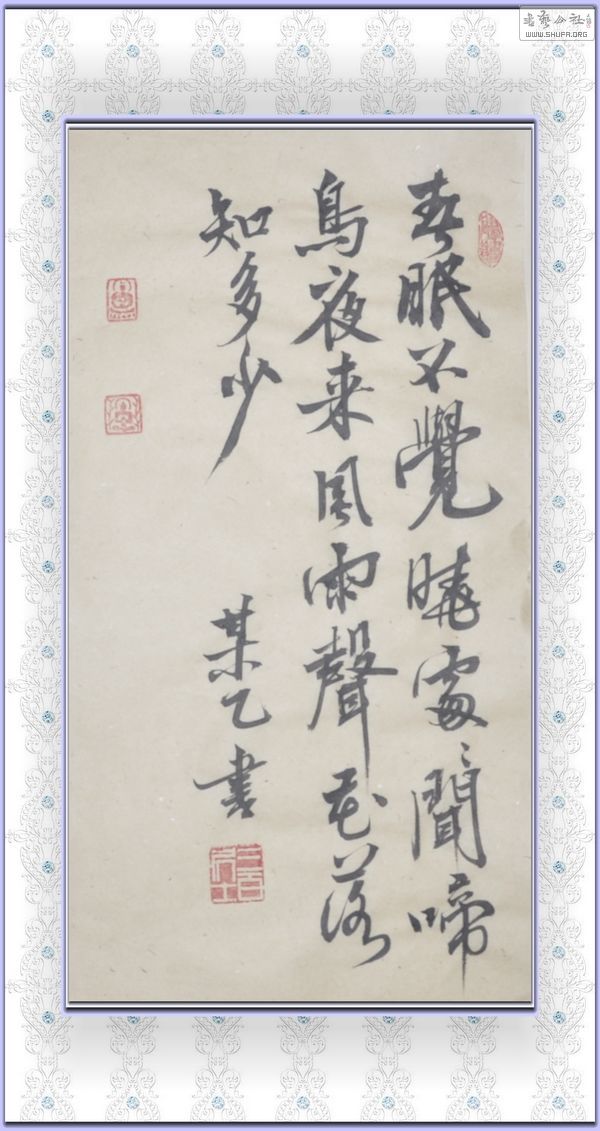 春眠不覺曉處〻聞啼
鳥夜来風雨聲花落
知多少
某乙書
WWW.SHUFA.ORG